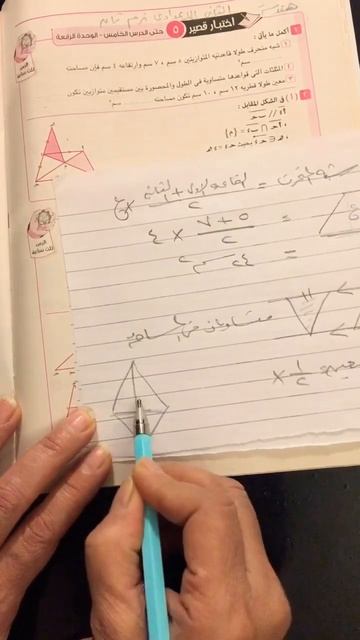 الثاني الاعدادي ترم تاني
اختبار قصير ٥ حتى الدرس الخامس - الوحدة الرابعة
١ أكمل ما يأتى :
١ شبه منحرف طولا قاعدتيه المتوازيتين ٥ سم ، ٧ سم وارتفاعه ٤ سم فإن مساحته
سم٢
٢ المثلثات التى قواعدها متساوية فى الطول والمحصورة بين مستقيمين متوازيين تكون
٣ معين طولا قطريه ١٢ سم ، ١٠ سم تكون مساحته سم٢
٢ (أ) فى الشكل المقابل :
= القاعدة الأولى + الثانية / ٢ × ع
= ٥ + ٧ / ٢ × ٤
= ٢٤ سم٢
متساويان فى المساحة
١/٢ ×